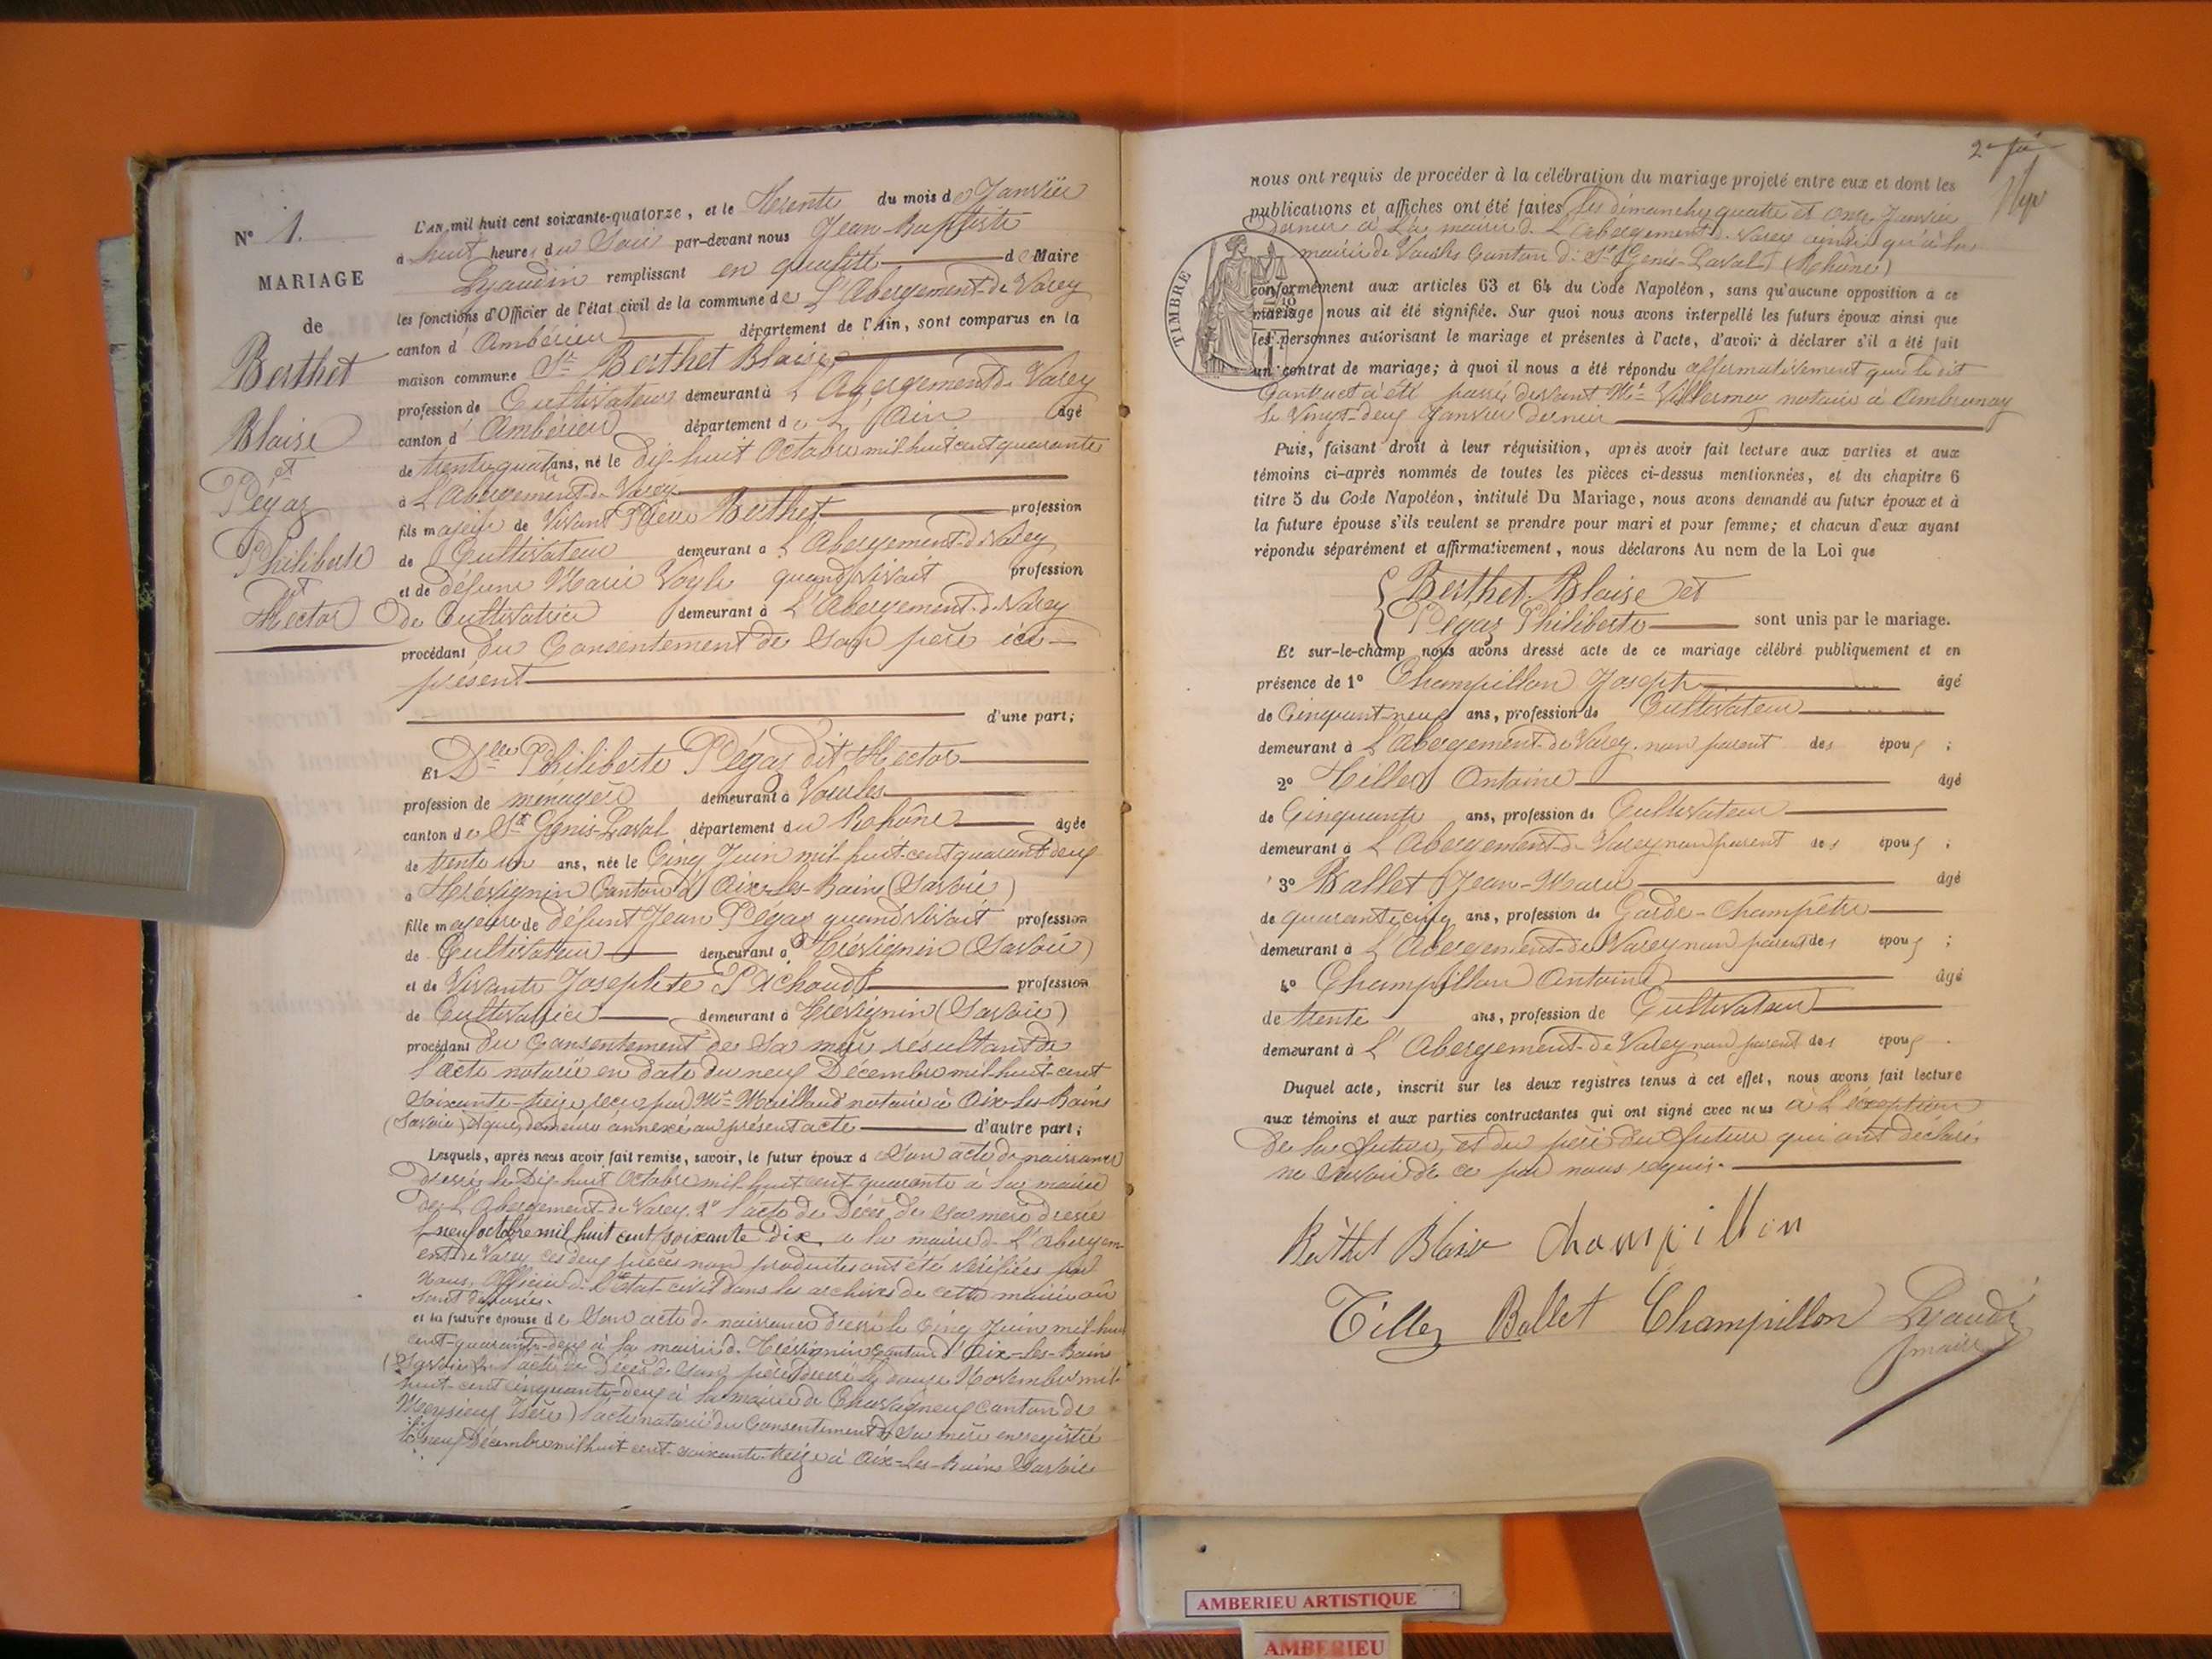 N° 1.
MARIAGE
de
Berthet
Blaise
et
Pégaz
Philiberte
dit
Hector
L'AN mil huit cent soixante-quatorze, et le Trente du mois de Janvier
à huit heures du Soir par-devant nous Jean-Baptiste
Lyaudin remplissant en qualité de Maire
les fonctions d'Officier de l'état civil de la commune de L'Abergement-de Varey
canton d'Ambérieu département de l'Ain, sont comparus en la
maison commune Sr Berthet Blaise
profession de Cultivateur demeurant à L'Abergement-de Varey
canton d'Ambérieu département de L'Ain âgé
de trente quatre ans, né le Dix-huit Octobre mil huit cent quarante
à L'Abergement-de Varey
fils majeur de Vivant Pierre Berthet profession
de Cultivateur demeurant à L'Abergement-de Varey
et de défunte Marie quand vivait profession
de Cultivatrice demeurant à L'Abergement-de Varey
procédant du Consentement de Son père ici
présent
d'une part;
Et Dlle Philiberte Pégaz dit Hector
profession de ménagère demeurant à Vourles
canton de St Genis-Laval département du Rhône âgée
de trente un ans, née le Cinq Juin mil-huit-cent quarante deux
à Trévignin Canton d'Aix-les-Bains (Savoie)
fille majeure de défunt Jean Pégaz quand vivait profession
de Cultivateur demeurant à Trévignin (Savoie)
et de Vivante Josephte Pichoud profession
de Cultivatrice demeurant à Trévignin (Savoie)
procédant du Consentement de Sa mère résultant de
l'acte notarié en date du neuf Décembre mil-huit-cent
soixante-treize reçu par Me Maillaud notaire à Aix-les-Bains
(Savoie) et qui demeure annexé au présent acte d'autre part;
Lesquels, après nous avoir fait remise, savoir, le futur époux d Son acte de naissance
dressé le Dix-huit Octobre mil-huit cent quarante à la mairie
de L'Abergement-de Varey. 2° l'acte de Décès de sa mère dressé
le neuf octobre mil huit cent soixante Dix à la mairie de L'Abergem-
ent de Varey ces deux pièces non produites ont été vérifiées par
Nous, Officier de l'état-civil dans les archives de cette mairie où
sont déposées.
et la future épouse de Son acte de naissance dressé le Cinq Juin mil-huit
cent-quarante-deux à la mairie de Trévignin Canton d'Aix-les-Bains
(Savoie) l'acte de Décès de Son père dressé le douze Novembre mil-
huit-cent cinquante-deux à la mairie de Chavagneux Canton de
Meyzieux Isère) l'acte notarié du Consentement de Sa mère enregistré
le neuf Décembre mil huit-cent-soixante-treize à Aix-les-Bains Savoie
2e
nous ont requis de procéder à la célébration du mariage projeté entre eux et dont les
publications et affiches ont été faites les dimanches quatre et onze Janvier
Dernier à la mairie de L'Abergement-de Varey ainsi qu'à la
mairie de Vourles Canton de St Genis-Laval (Rhône)
conformément aux articles 63 et 64 du Code Napoléon, sans qu'aucune opposition à ce
mariage nous ait été signifiée. Sur quoi nous avons interpellé les futurs époux ainsi que
les personnes autorisant le mariage et présentes à l'acte, d'avoir à déclarer s'il a été fait
un contrat de mariage; à quoi il nous a été répondu affermativement que le dit
Contract a été passé devant Me Villermoz notaire à Ambronay
le Vingt-deux Janvier dernier
TIMBRE
Puis, faisant droit à leur réquisition, après avoir fait lecture aux parties et aux
témoins ci-après nommés de toutes les pièces ci-dessus mentionnées, et du chapitre 6
titre 5 du Code Napoléon, intitulé Du Mariage, nous avons demandé au futur époux et à
la future épouse s'ils veulent se prendre pour mari et pour femme; et chacun d'eux ayant
répondu séparément et affirmativement, nous déclarons Au nom de la Loi que
Berthet Blaise et
Pégaz Philiberte sont unis par le mariage.
Et sur-le-champ nous avons dressé acte de ce mariage célébré publiquement et en
présence de 1° Champillon Joseph âgé
de Cinquant-neuf ans, profession de Cultivateur
demeurant à L'Abergement-de Varey, non parent des époux;
2° Tiller Antoine âgé
de Cinquante ans, profession de Cultivateur
demeurant à L'Abergement-de Varey non parent des époux;
3° Ballet Jean-Marie âgé
de quarante cinq ans, profession de Garde-Champêtre
demeurant à L'Abergement-de Varey non parent des époux;
4° Champillon Antoine âgé
de trente ans, profession de Cultivateur
demeurant à L'Abergement-de Varey non parent des époux.
Duquel acte, inscrit sur les deux registres tenus à cet effet, nous avons fait lecture
aux témoins et aux parties contractantes qui ont signé avec nous à L'exception
De la future, et du père du future qui ont déclaré
ne savoir de ce par nous requis.
Berthet Blaise Champillon
Tiller Ballet Champillon Lyaudin
maire
AMBERIEU ARTISTIQUE
AMBERIEU